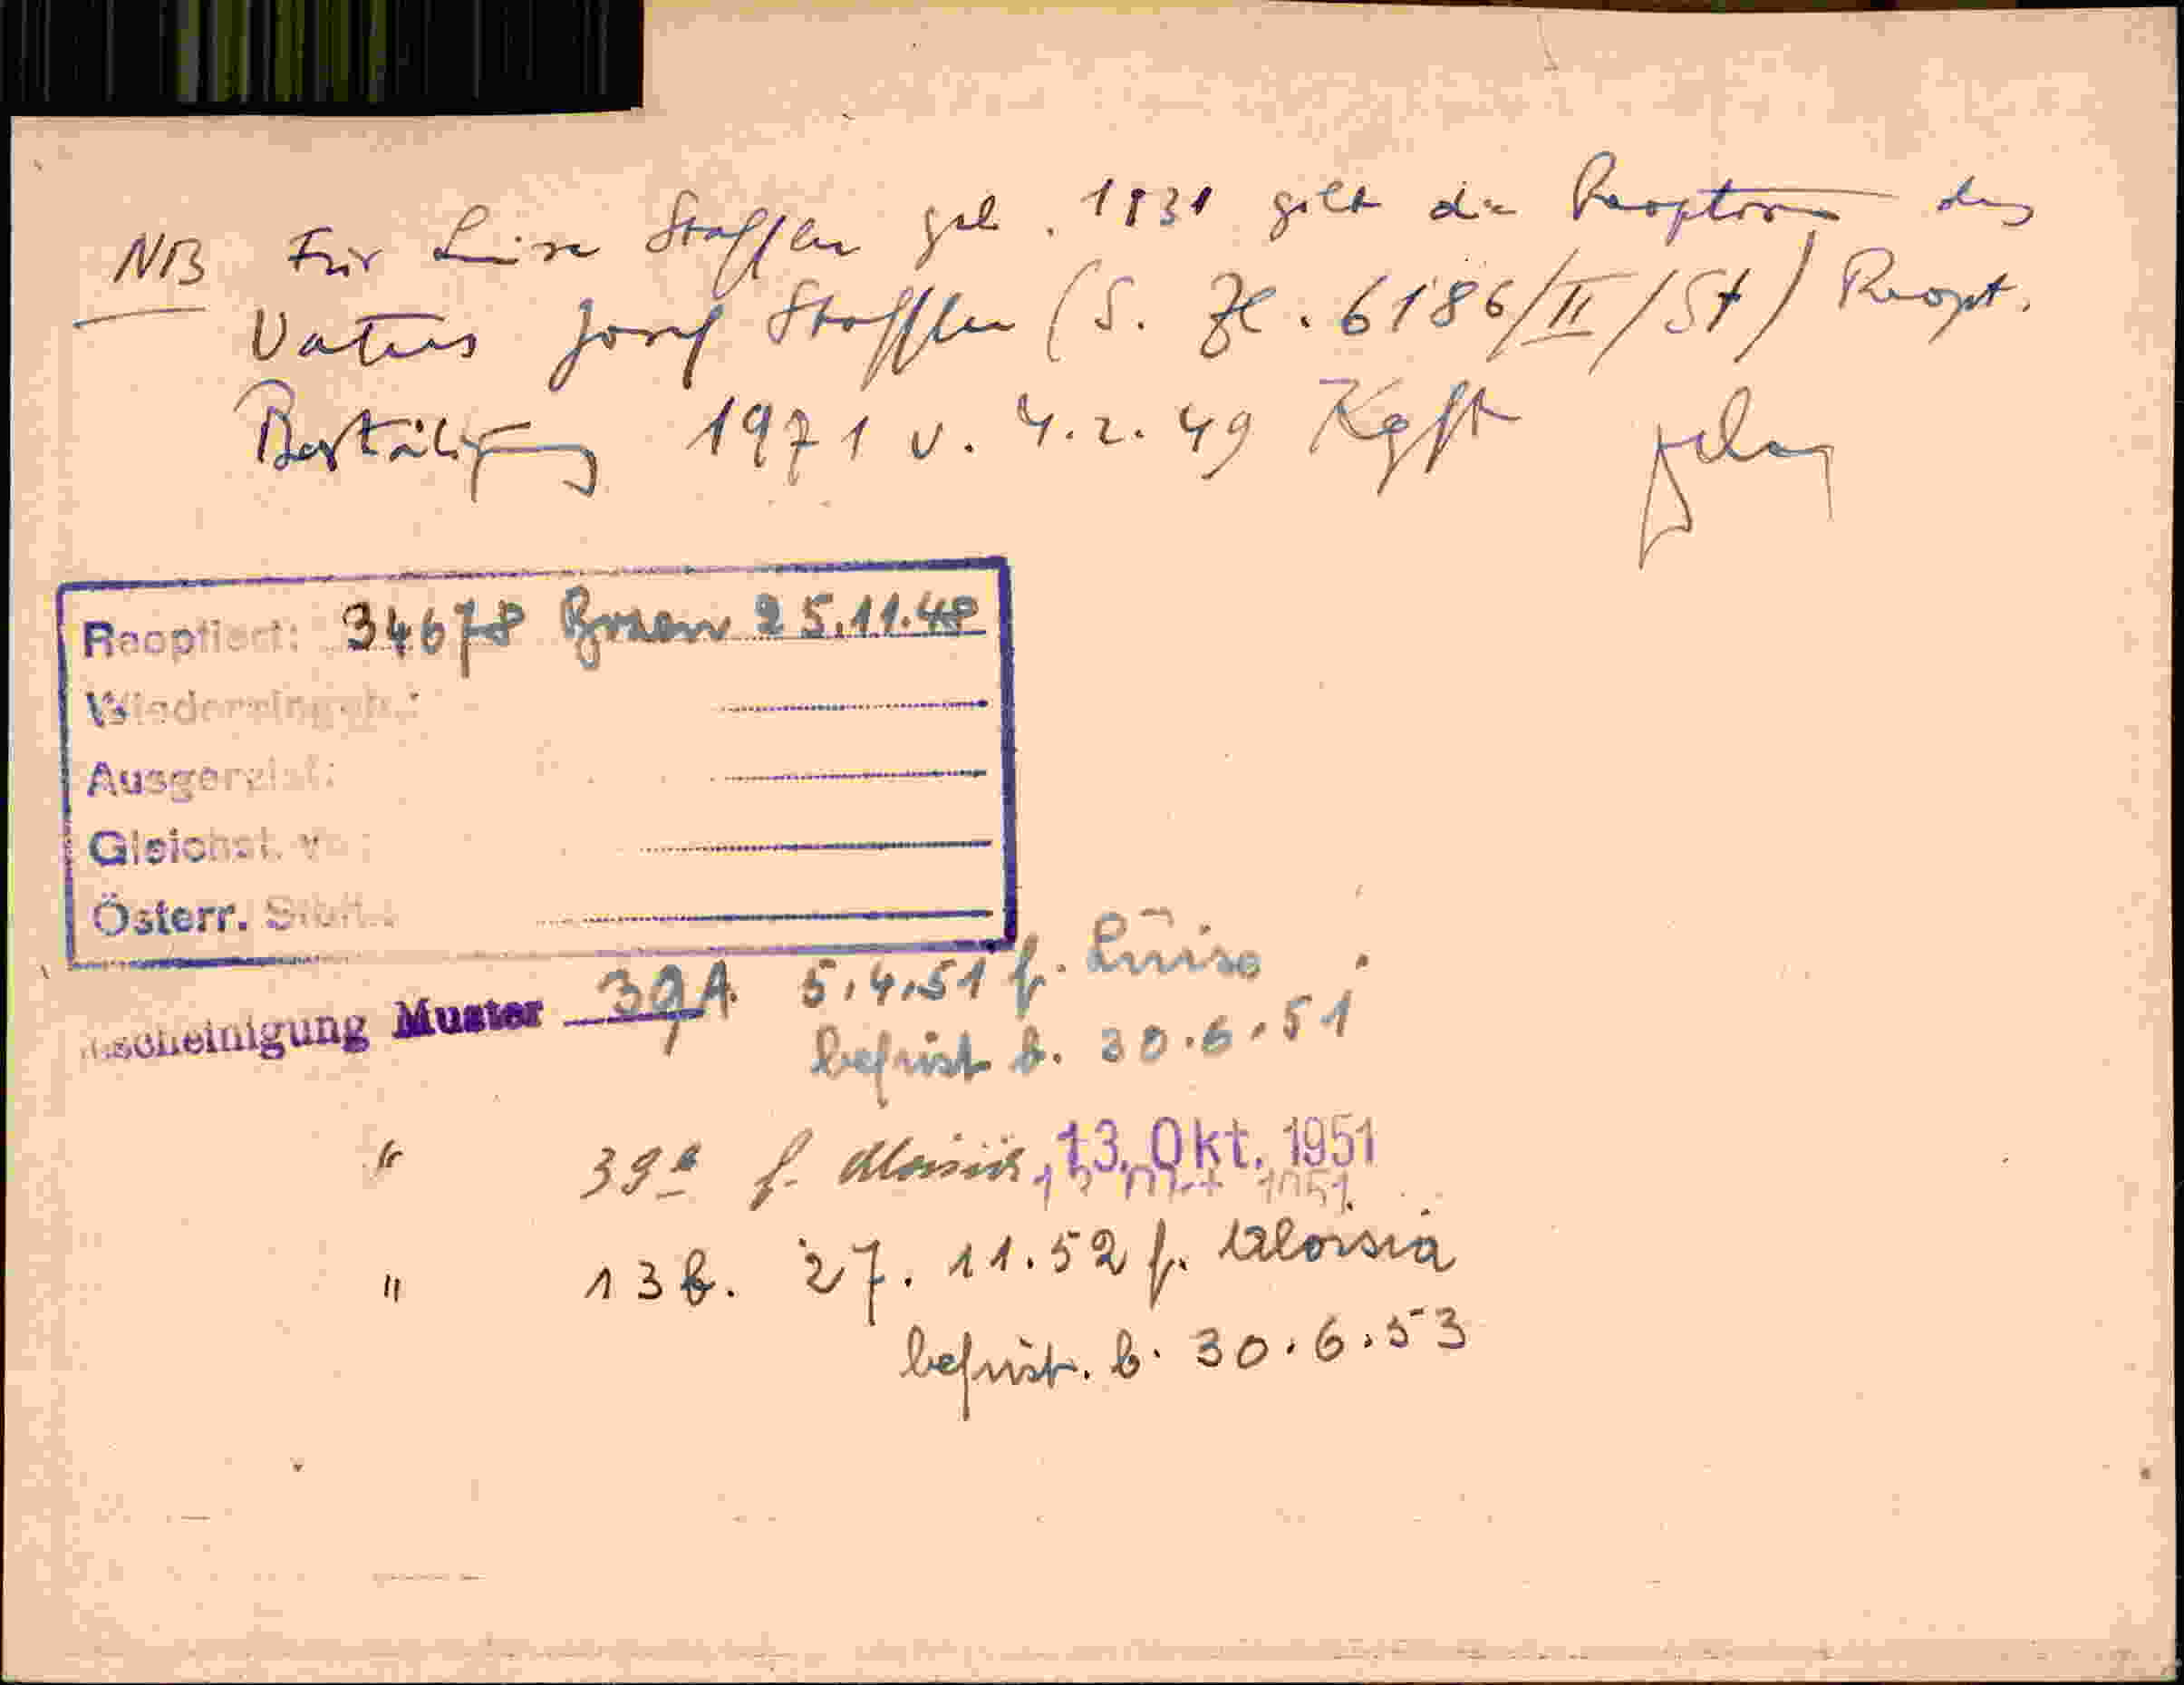 NB Für Luise Staffler geb. 1931 gilt die Reoption des
Vaters Josef Staffler (S. Zl. 6186/II/St) Reopt.
Bestätigung 1971 v. 4.2.49 Kgft
Reoptiert: 34678 Bozen 25.11.48
Wiedereingeb.:
Ausgereist:
Gleichst. v.:
Österr. Stbft.:
scheinigung Muster 39A. 5.4.51 f. Luise
befrist b. 30.6.51
" 39a f. Aloisia 13. Okt. 1951
" 13b. 27.11.52 f. Aloisia
befrist. b. 30.6.53